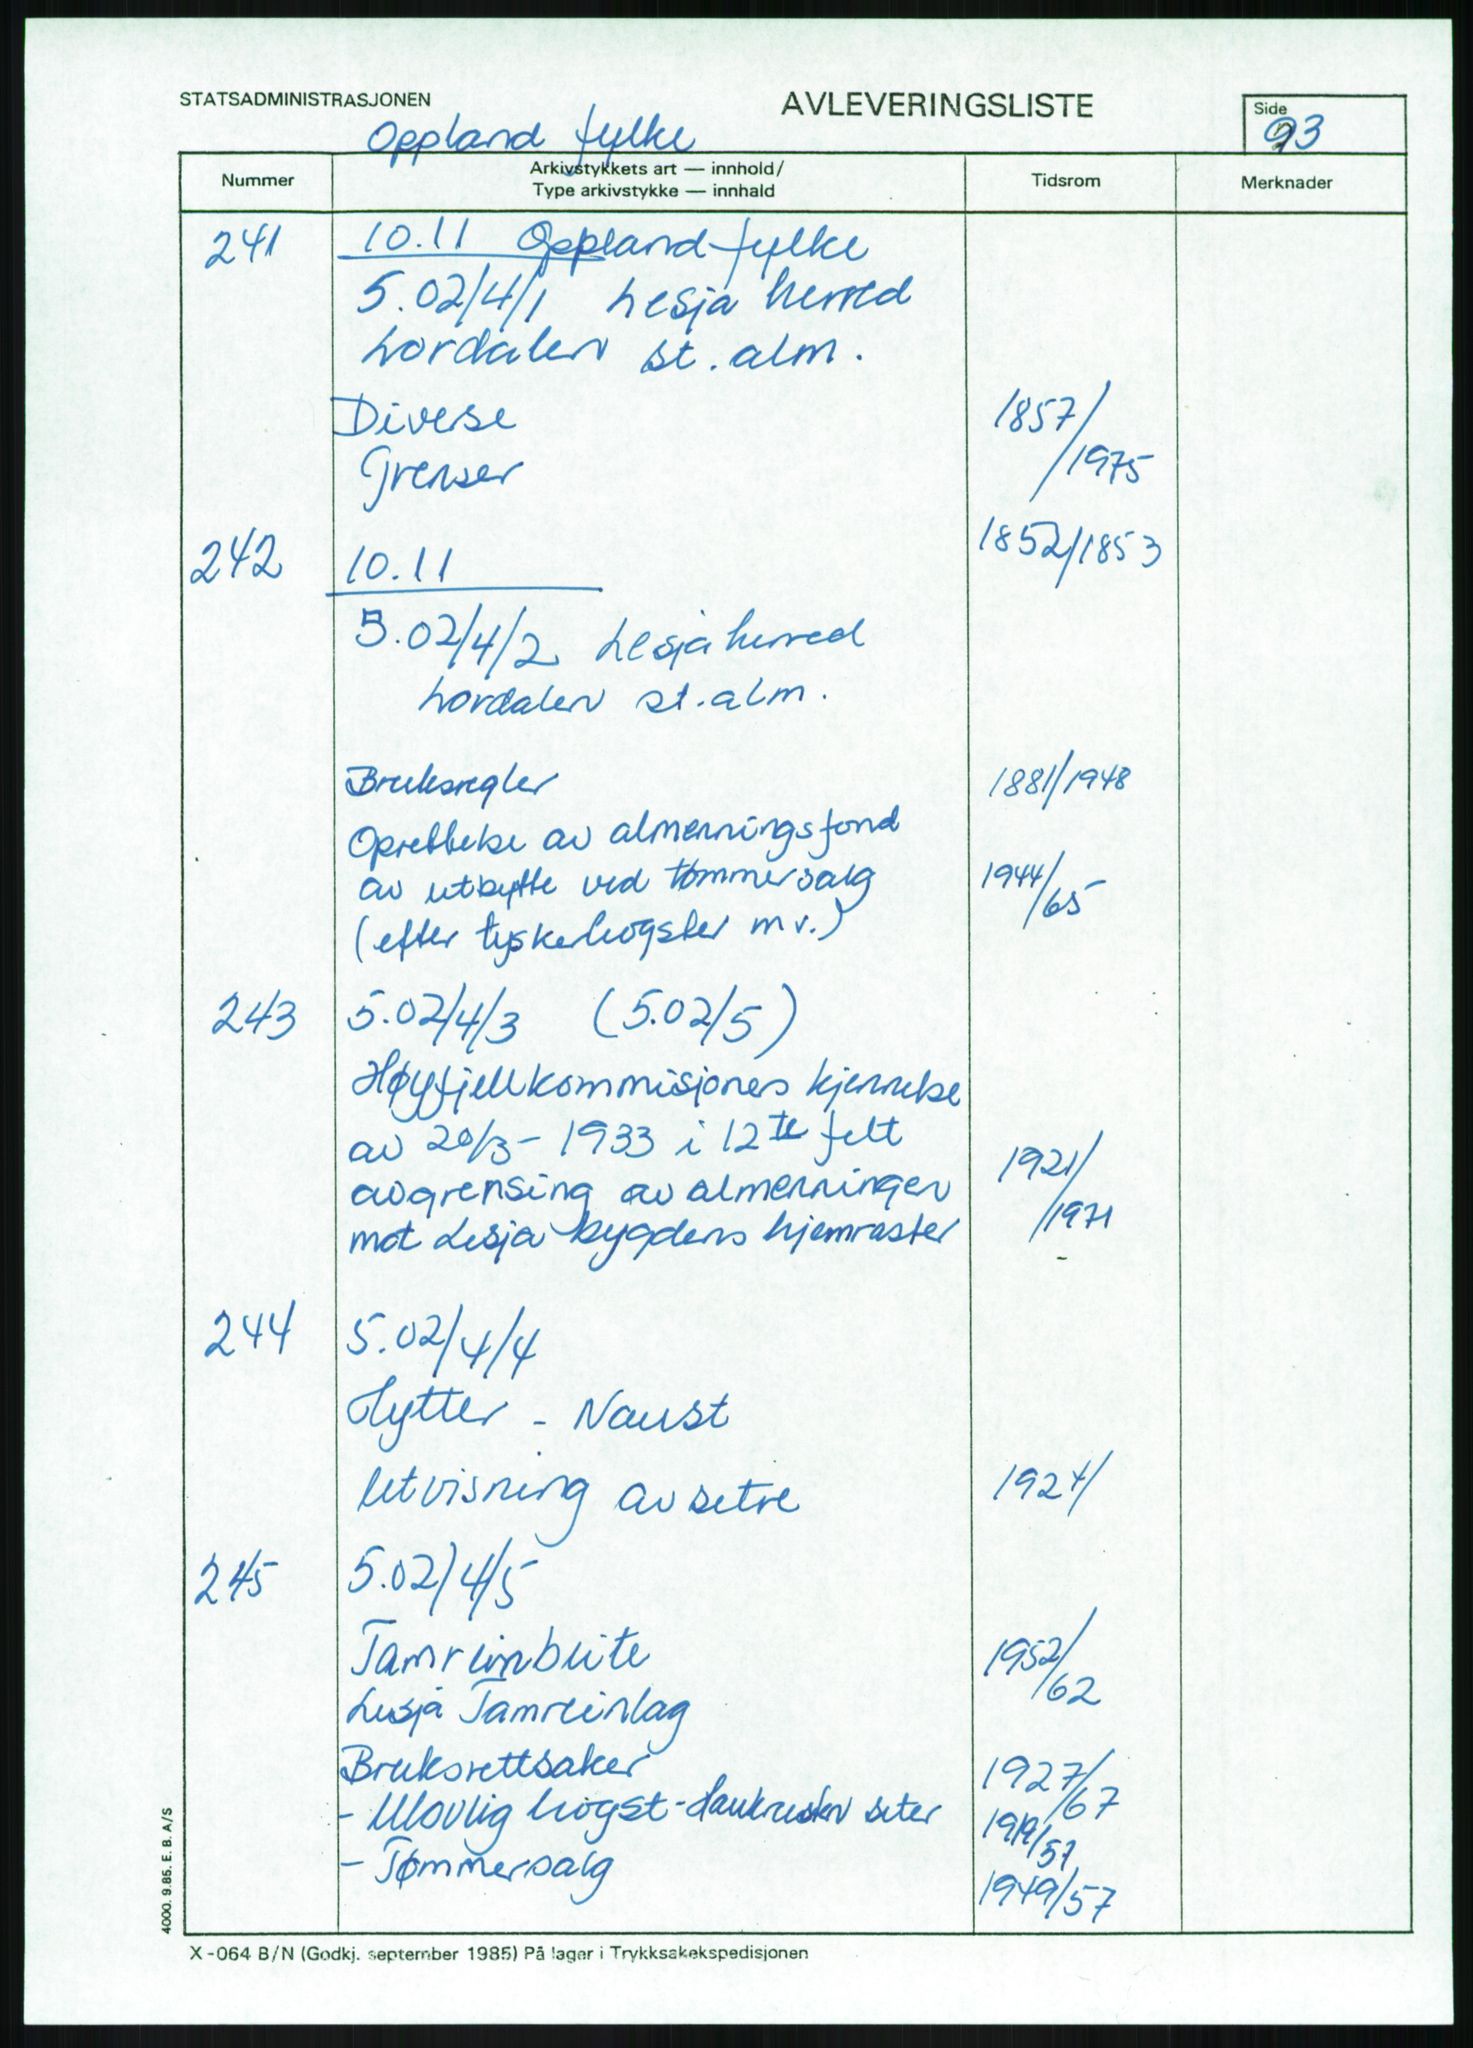 STATSADMINISTRASJONEN
AVLEVERINGSLISTE
Side
93
Oppland fylke
Nummer
Arkivstykkets art — innhold/
Type arkivstykke — innhald
Tidsrom
Merknader
241 10.11 Oppland fylke
5.02/4/1 Lesja herred
Lordalen st. alm.
Diverse 1857/
Grenser /1975
242 10.11 1852/1853
5.02/4/2 Lesja herred
Lordalen st. alm.
Bruksregler 1881/1948
Oprettelse av almenningsfond
av utbytte ved tømmersalg 1944/65
(efter tyskerhogster m v.)
243 5.02/4/3 (5.02/5)
Høyfjellkommisjonens kjennelse
av 20/3 - 1933 i 12te felt
avgrensing av almenningen 1921/
mot Lesja bygdens hjemraster /1971
244 5.02/4/4
Hytter - Naust
Utvisning av setre 1924/
245 5.02/4/5
Tamreinbeite 1952/62
Lesja Tamreinlag
Bruksrettsaker 1927/67
- Ulovlig hogst - seter 1919/57
- Tømmersalg 1949/57
4000. 9.85. E. B. A/S
X-064 B/N (Godkj. september 1985) På lager i Trykksakekspedisjonen